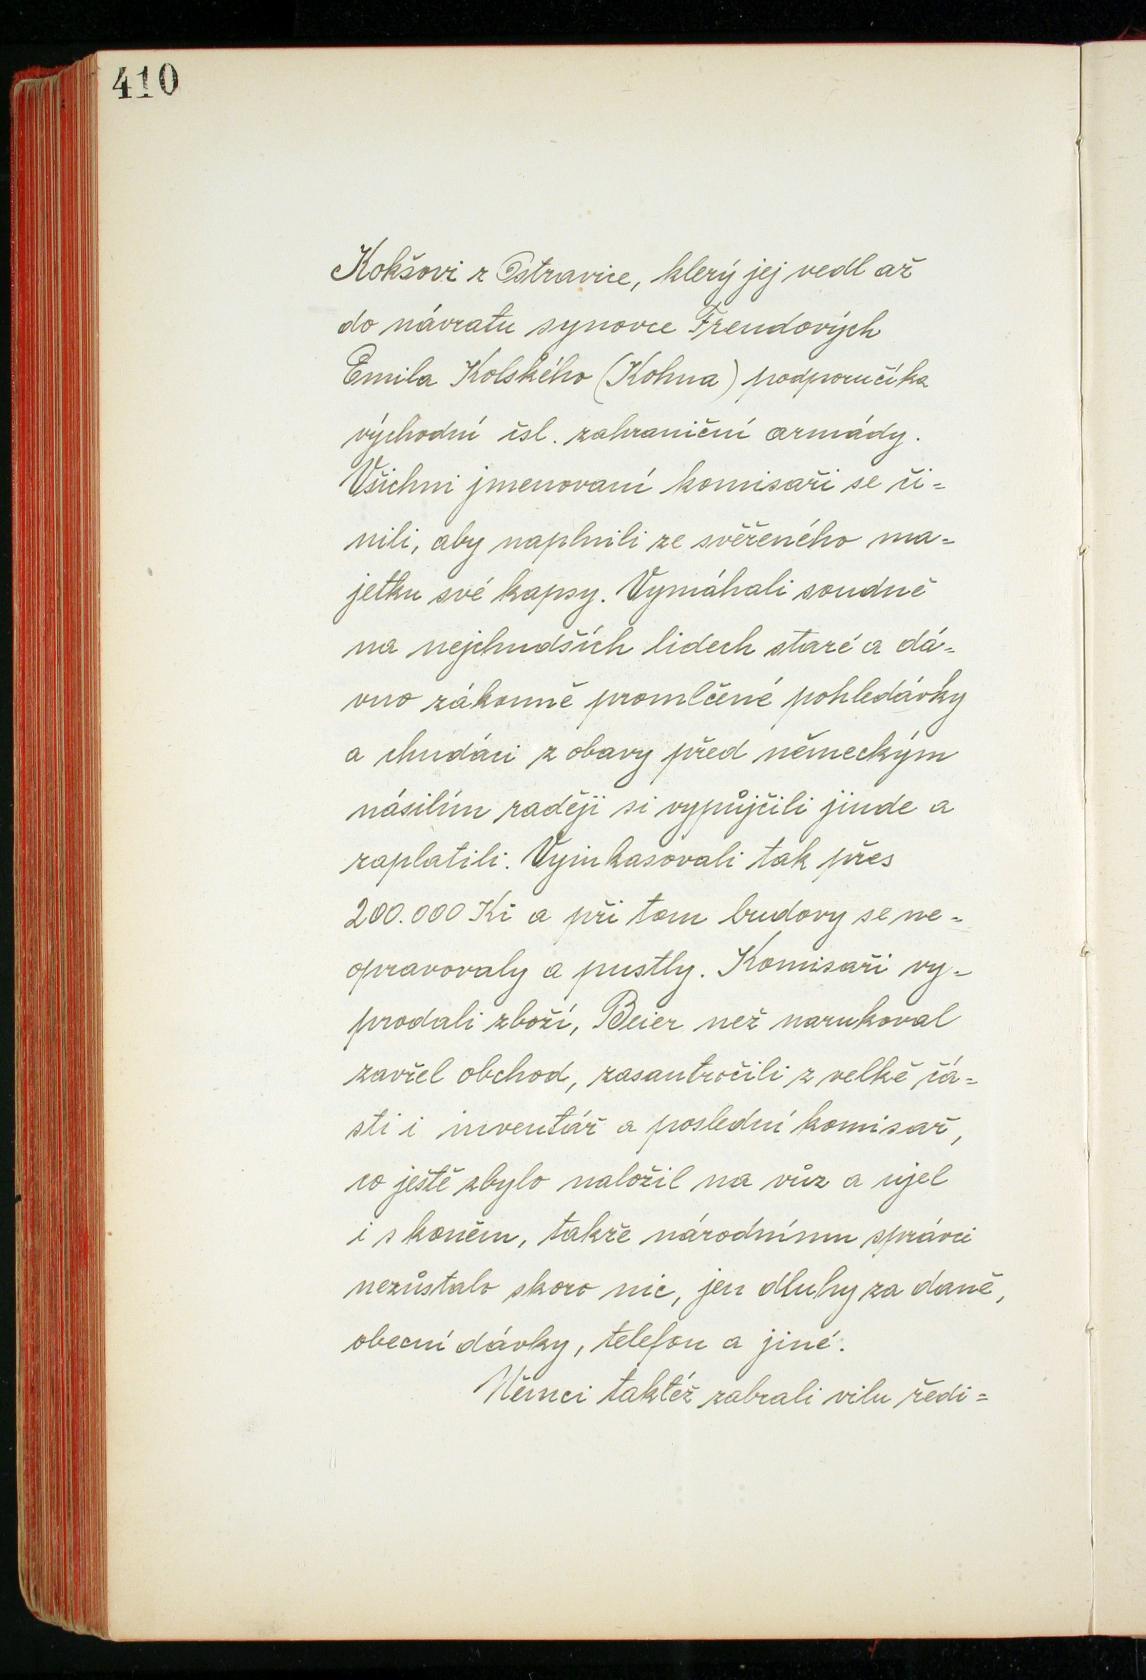 410
Kokšovi z Ostravice, který jej vedl až
do návratu synovce Freudových
Emila Kolského (Kohna) podporučíka
východní čsl. zahraniční armády.
Všichni jmenovaní komisaři se či=
nili, aby naplnili ze svěřeného ma=
jetku své kapsy. Vymáhali soudně
na nejchudších lidech staré a dá=
vno zákonně promlčené pohledávky
a chudáci z obavy před německým
násilím raději si vypůjčili jinde a
zaplatili. Vyinkasovali tak přes
200.000 Kč a při tom budovy se ne=
opravovaly a pustly. Komisaři vy=
prodali zboží, Beier než narukoval
zavřel obchod, zasantročili z velké čá=
sti i inventář a poslední komisař,
co ještě zbylo naložil na vůz a ujel
i s koněm, takže národnímu správci
nezůstalo skoro nic, jen dluhy za daně,
obecní dávky, telefon a jiné.
Němci taktéž zabrali vilu ředi=